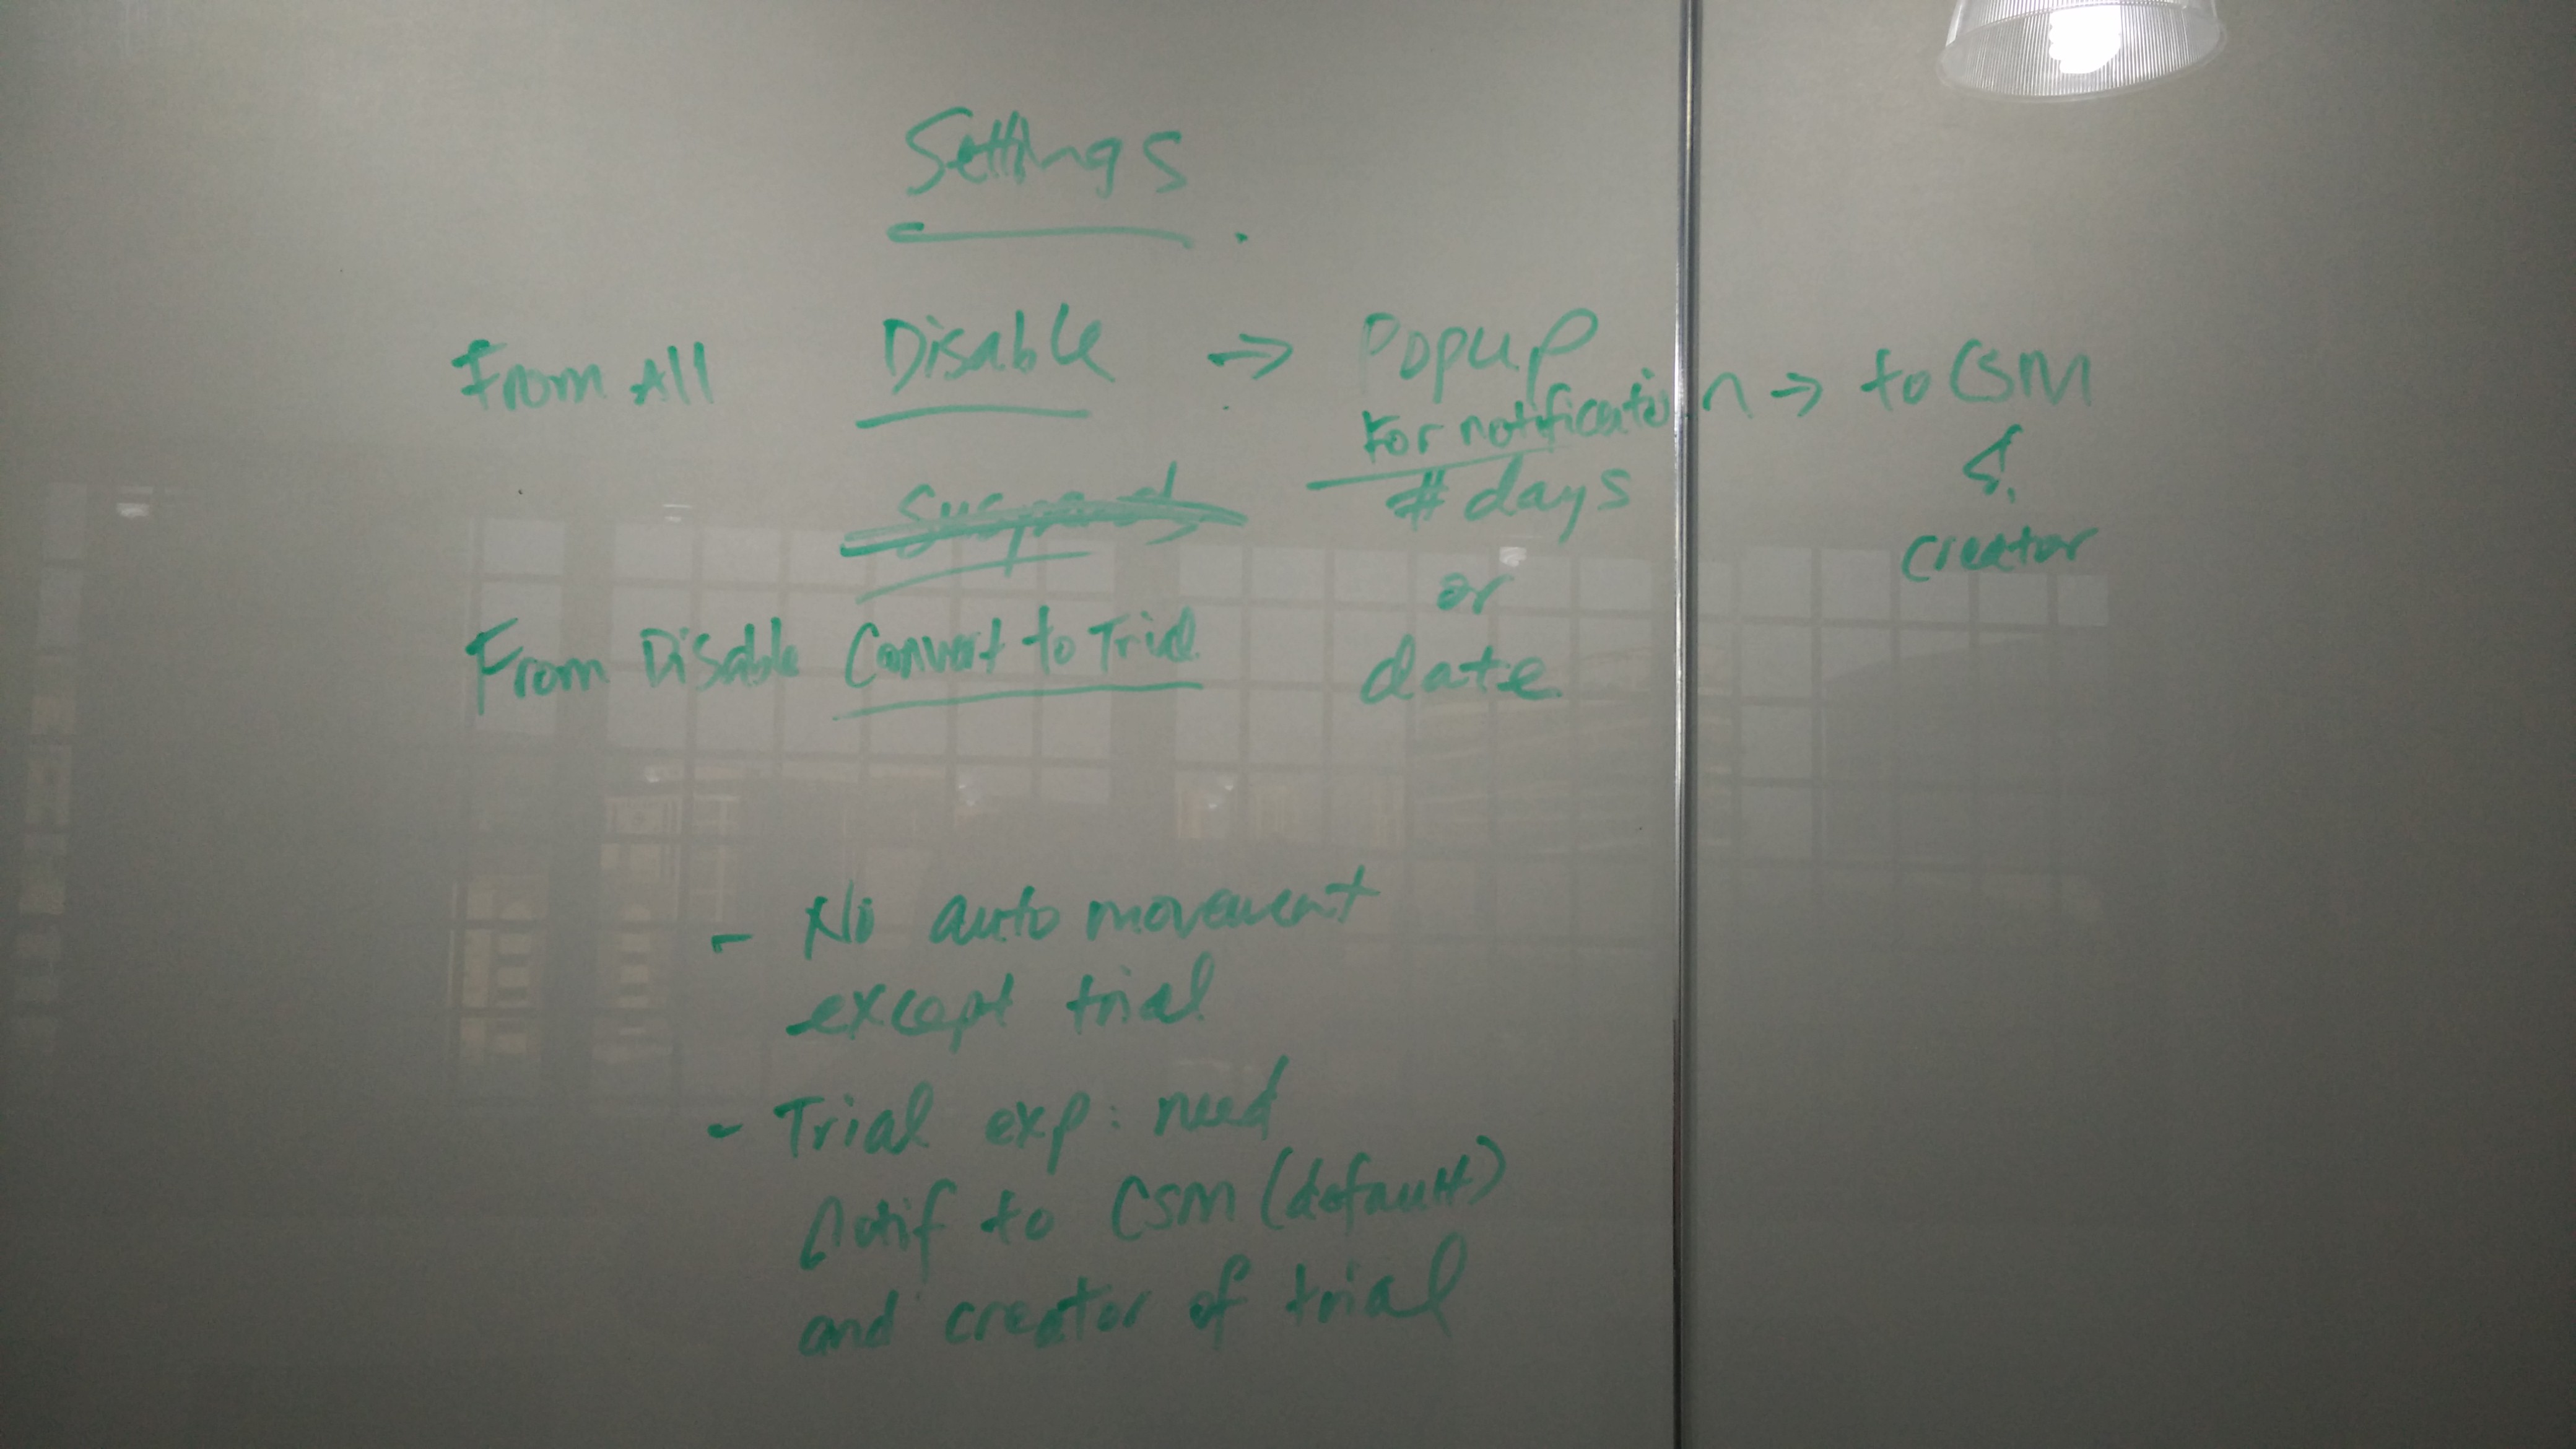 Settings
From All Disable → Popup
For notification → to CSM
&
creator
Suspend
# days
or
From Disable Convert to Trial
date
- No auto movement
except trial
- Trial exp: need
notif to CSM (default)
and creator of trial